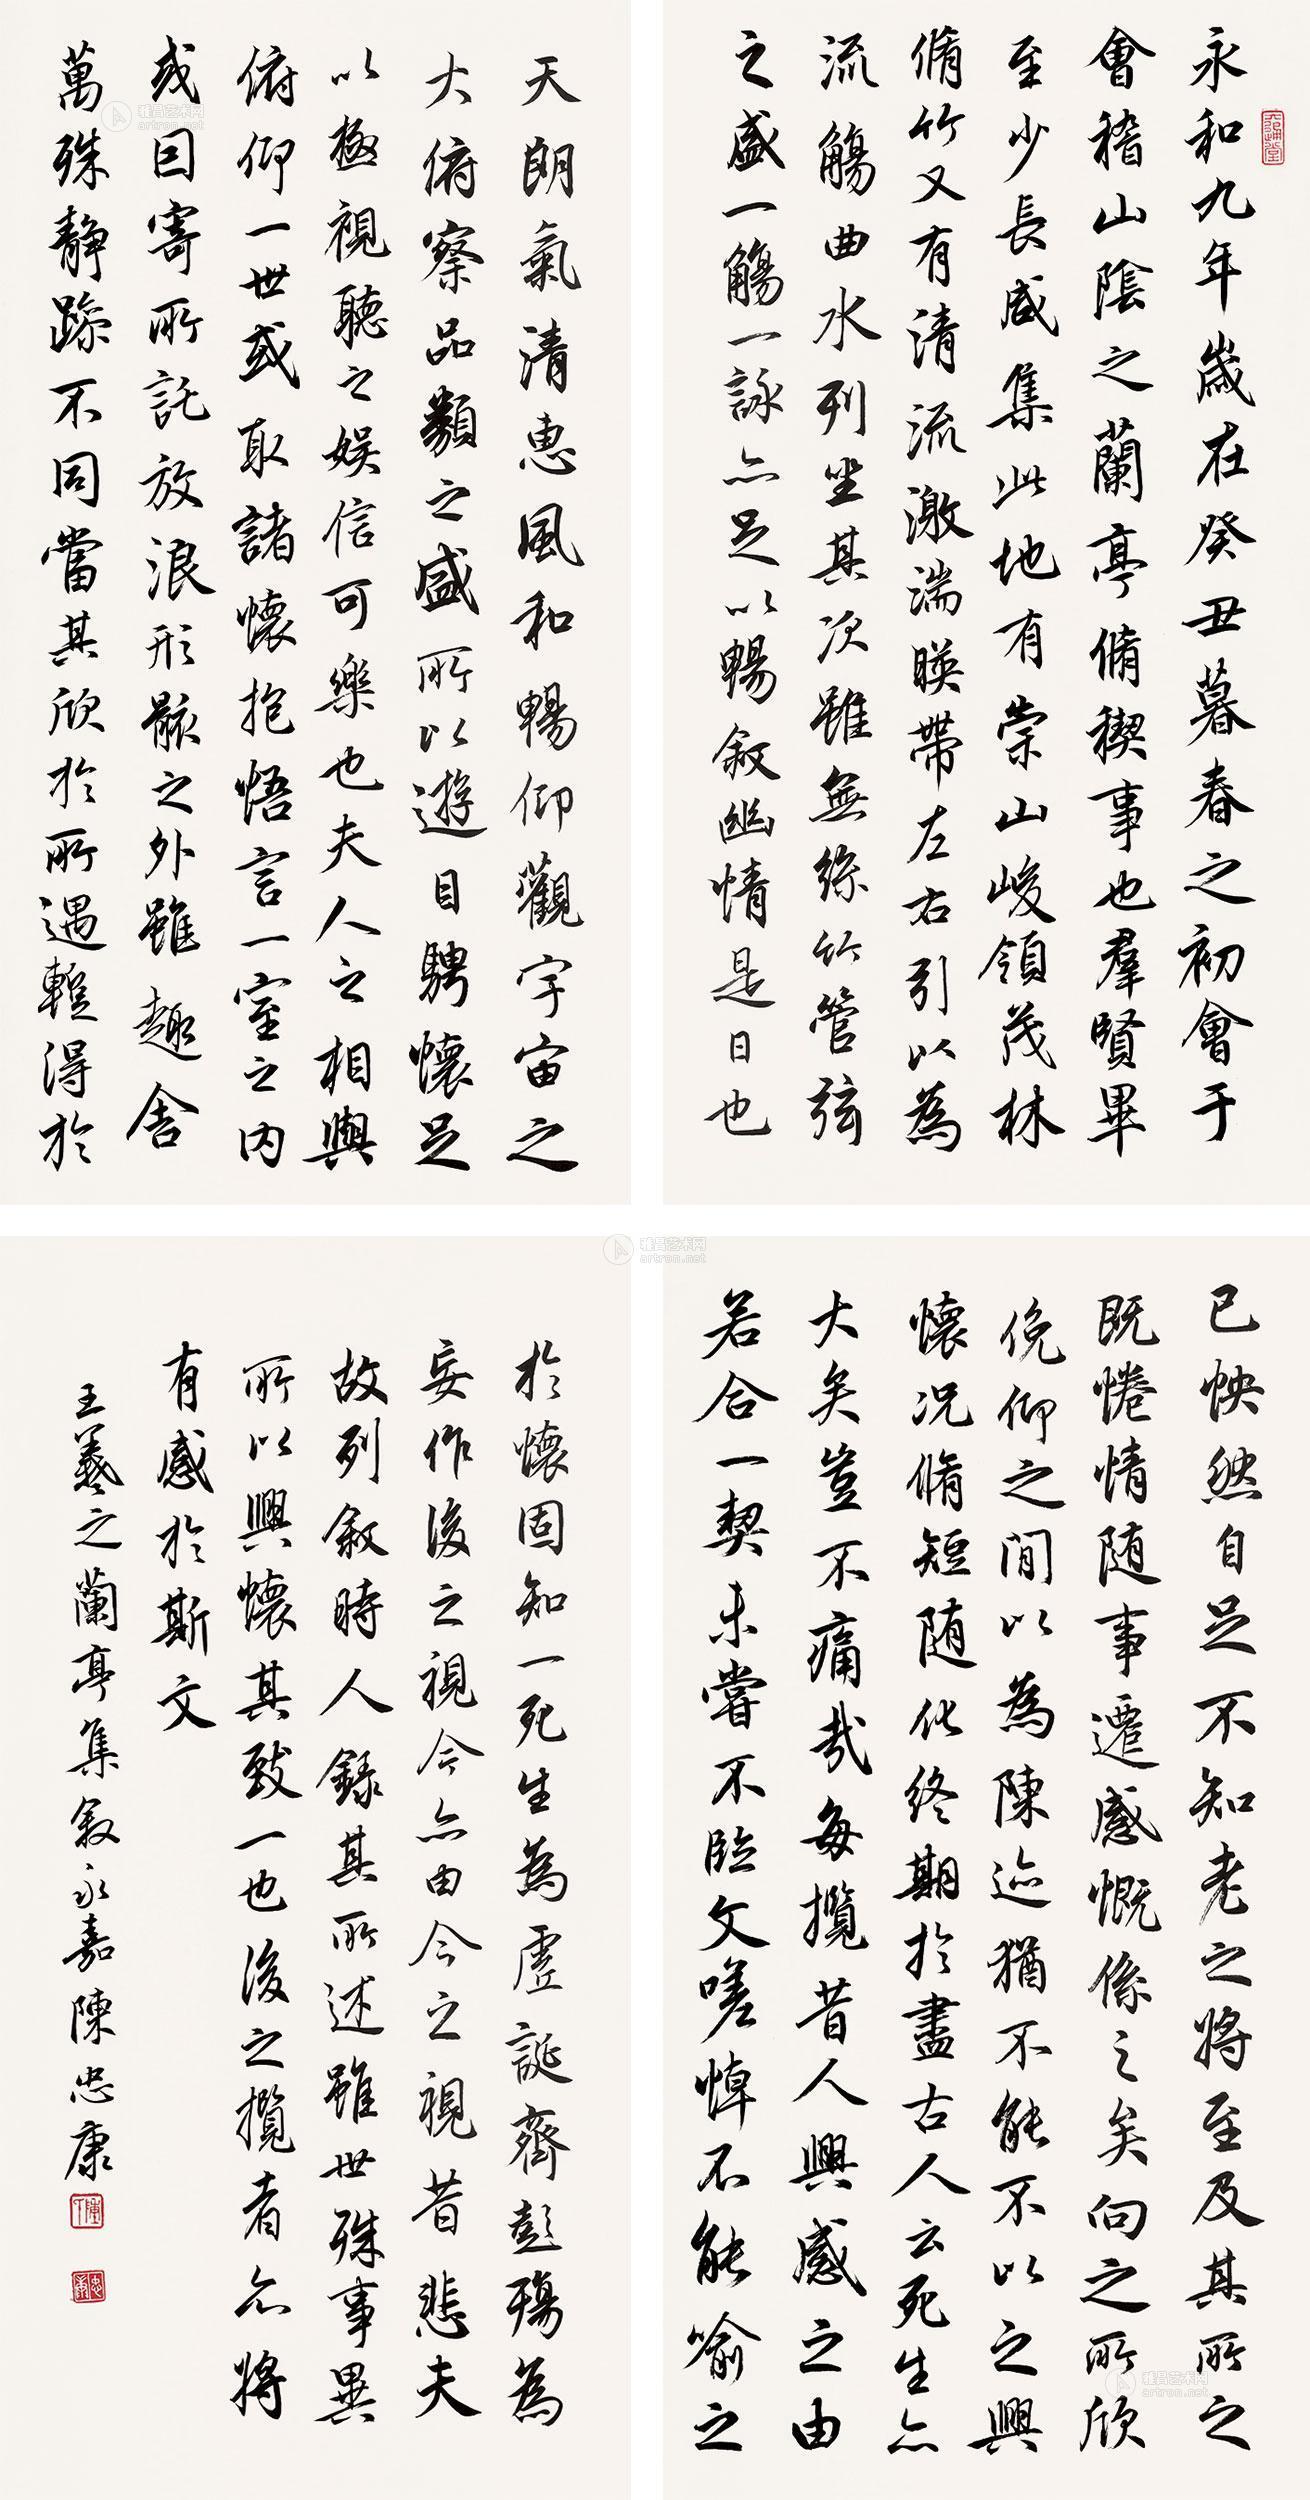 永和九年歲在癸丑暮春之初會于
會稽山陰之蘭亭脩稧事也羣賢畢
至少長咸集此地有崇山峻領茂林
脩竹又有清流激湍暎帶左右引以為
流觴曲水列坐其次雖無絲竹管弦
之盛一觴一詠亦足以暢敘幽情是日也
天朗氣清惠風和暢仰觀宇宙之
大俯察品類之盛所以遊目騁懷足
以極視聽之娛信可樂也夫人之相與
俯仰一世或取諸懷抱悟言一室之內
或因寄所託放浪形骸之外雖趣舍
萬殊靜躁不同當其欣於所遇蹔得於
己怏然自足不知老之將至及其所之
既惓情隨事遷感慨係之矣向之所欣
俛仰之閒以為陳迹猶不能不以之興
懷況脩短隨化終期於盡古人云死生亦
大矣豈不痛哉每攬昔人興感之由
若合一契未嘗不臨文嗟悼不能喻之
於懷固知一死生為虛誕齊彭殤為
妄作後之視今亦由今之視昔悲夫
故列敘時人錄其所述雖世殊事異
所以興懷其致一也後之攬者亦將
有感於斯文
王羲之蘭亭集敘永嘉陳忠康
雅昌艺术网
artron.net
雅昌艺术网
artron.net
雅昌艺术网
artron.net